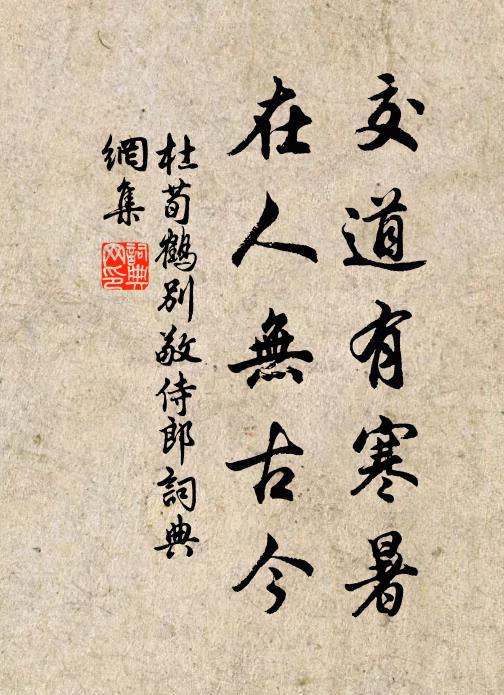 交道有寒暑
在人無古今
杜荀鶴別敬侍郎詞典
網集
詞典
网印